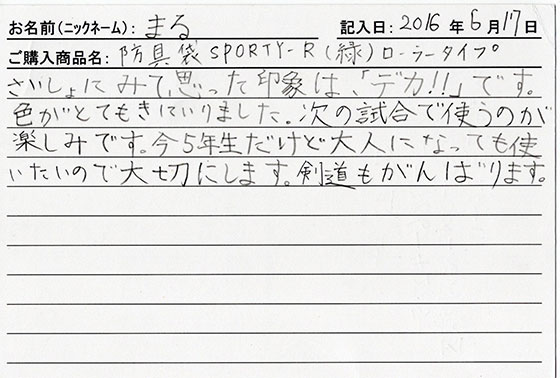 お名前(ニックネーム): まる 記入日: 2016 年 6 月 17 日
ご購入商品名: 防具袋 SPORTY-R (緑) ローラータイプ
さいしょにみて、思った印象は、「デカ!!」です。
色がとてもきにいりました。次の試合で使うのが
楽しみです。今5年生だけど大人になっても使
いたいので大切にします。剣道もがんばります。